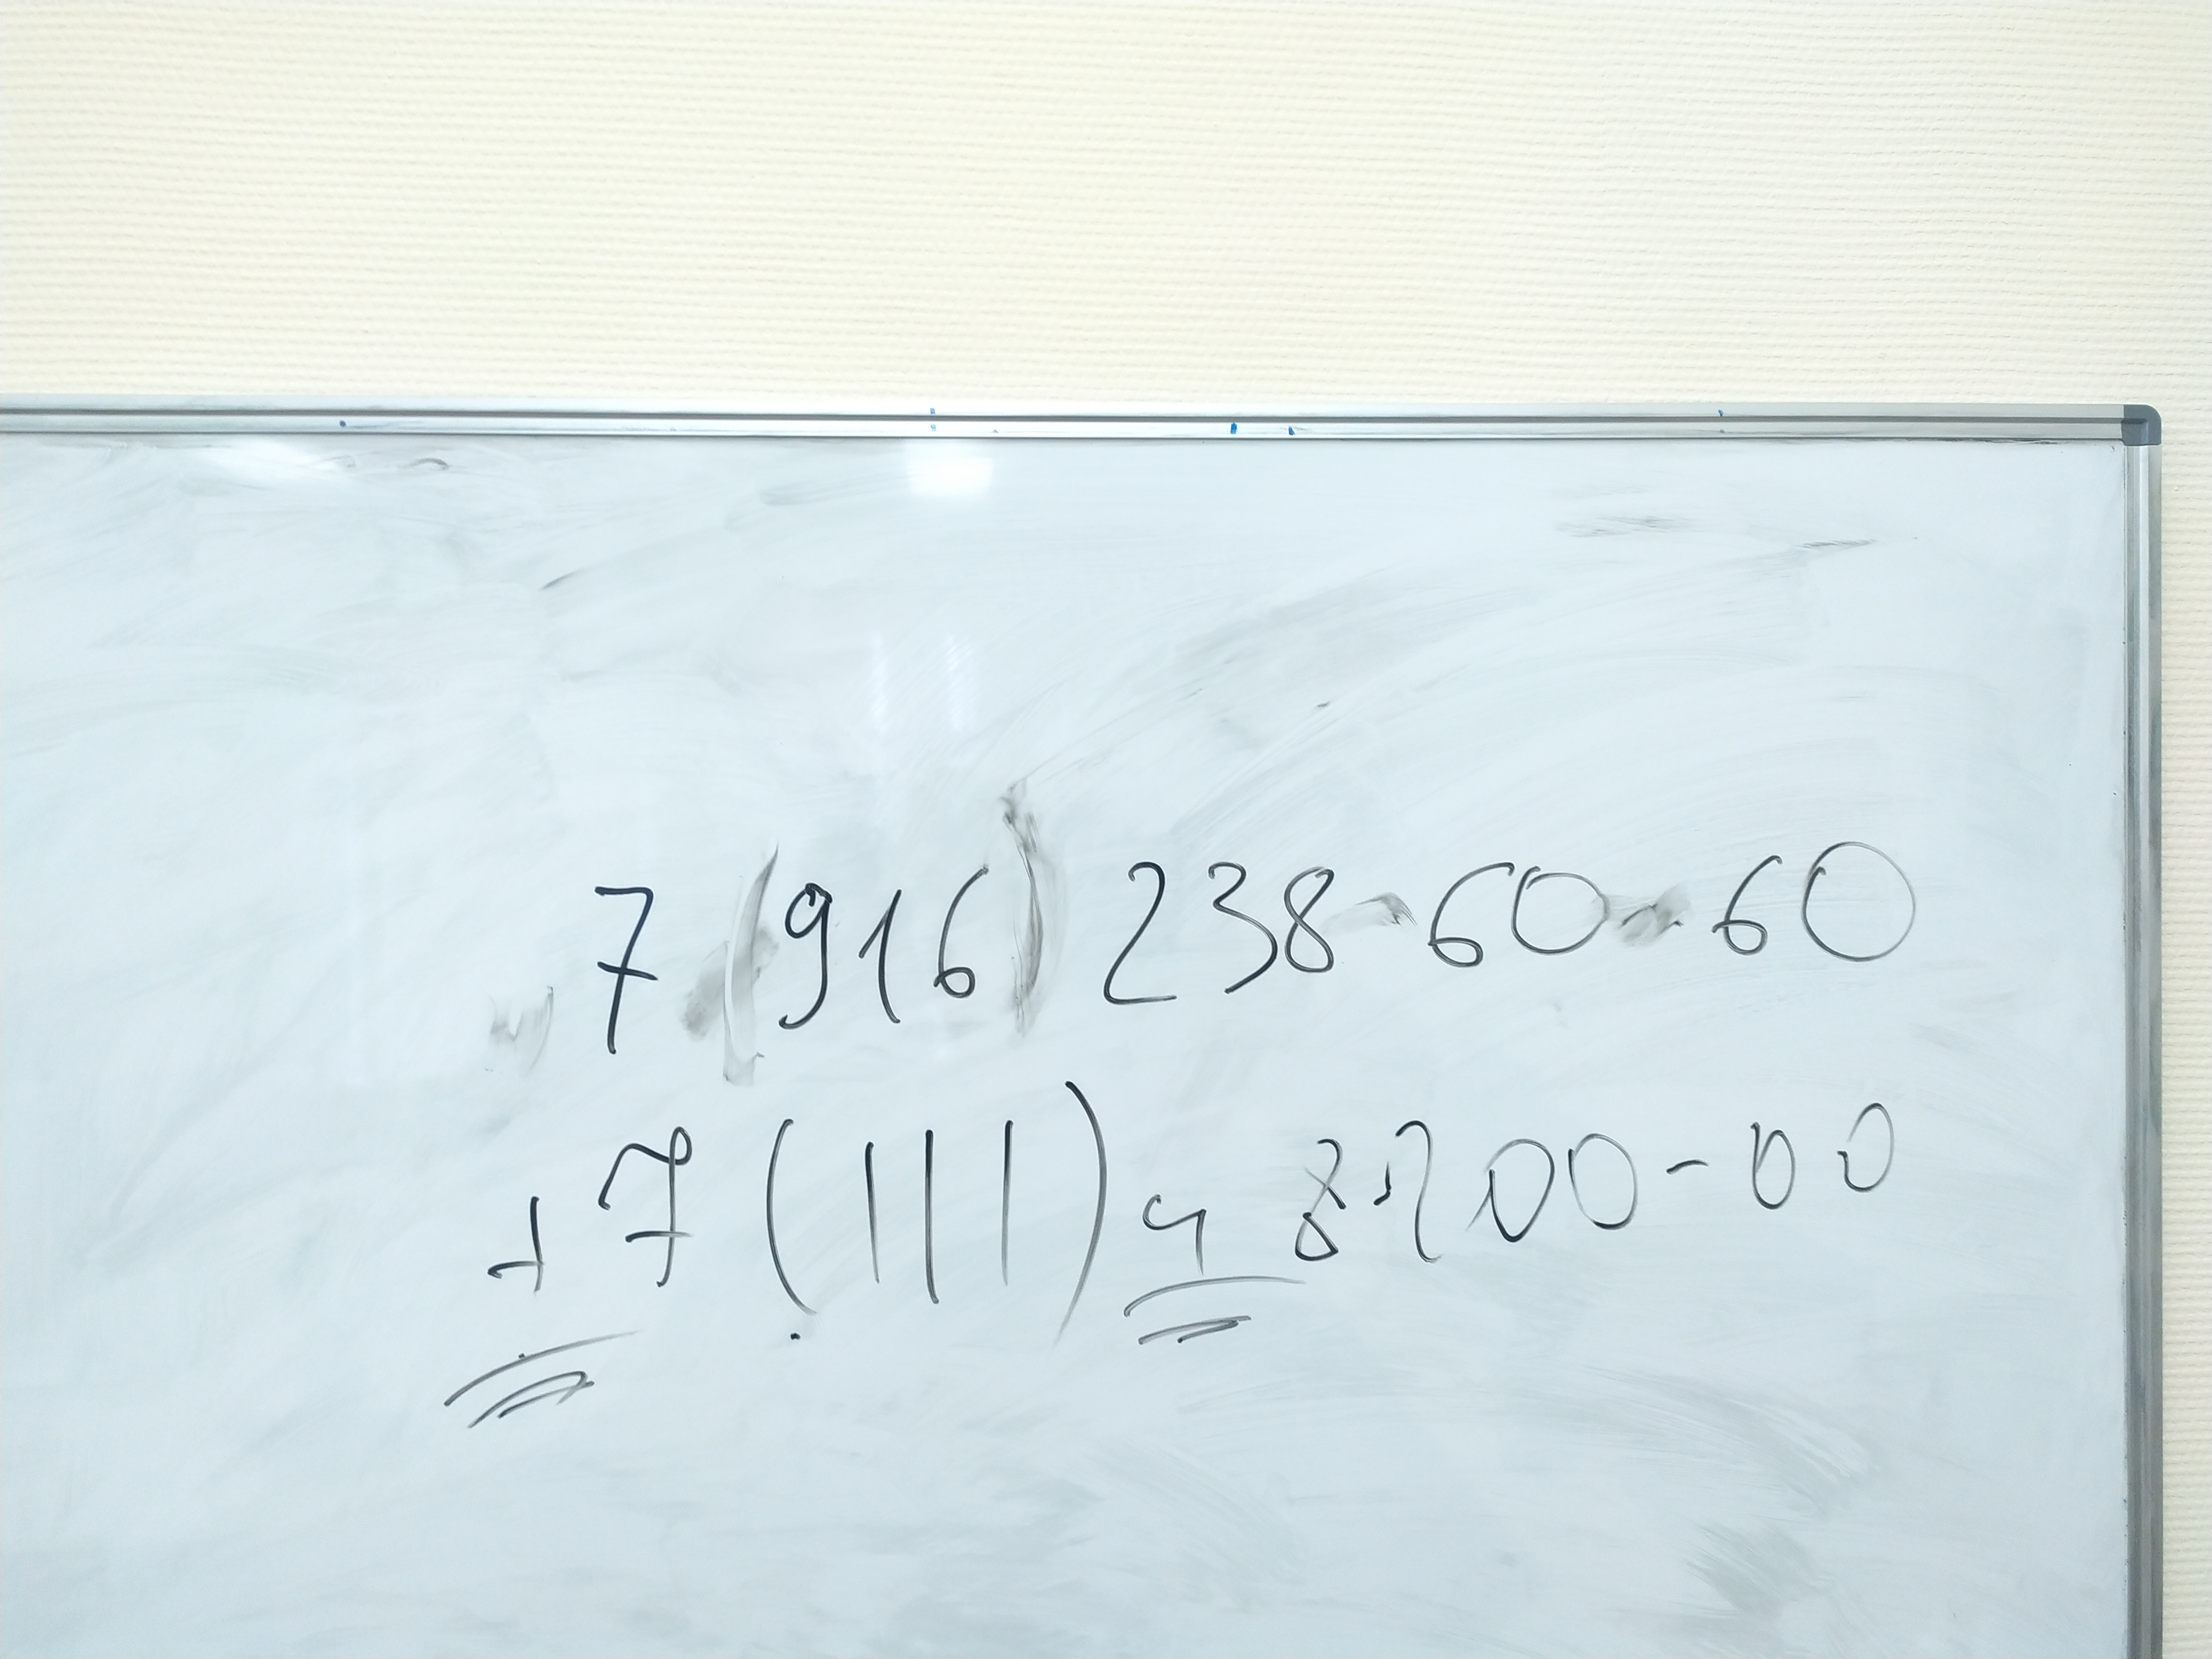 7(916) 238-60-60
+7(111) 4 8?200-00